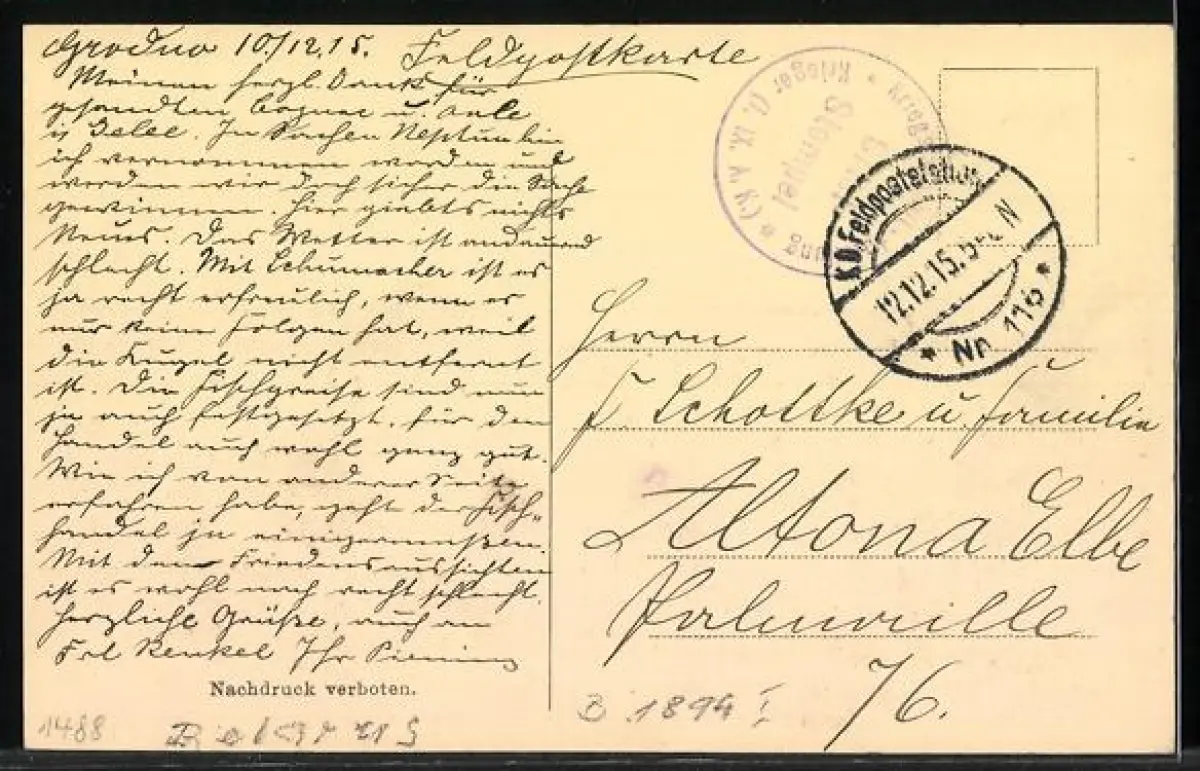 Grodno 10./12.15. Feldpostkarte
Meinen herzl. Dank für
gesandten Cognac u. Aale
in Gelee. In Sachen Neptun bin
ich vernommen worden und
werden wir doch sicher die Sache
gewinnen. Hier giebts nichts
Neues. Das Wetter ist andauernd
schlecht. Mit Schumacher ist es
ja recht erfreulich, wenn es
nur keine Folgen hat, weil
die Kugel nicht entfernt
ist. Die Fischpreise sind nun
ja auch festgesetzt, für den
Handel auch wohl ganz gut.
Wie ich von anderer Seite
erfahren habe, geht der Fisch-
handel ja einigermaßen.
Mit den Friedensaussichten
ist es wohl noch recht schlecht.
Herzliche Grüße, auch an
Frl Renkel Ihr Piening
Nachdruck verboten.
1488
Belarus
B 1894 I
Krieger
Stempel
K.D. Feldpoststation
12.12.15. N
* Nr 116 *
Herrn
F. Schottke u. Familie
Altona Elbe
Palmaille
76.